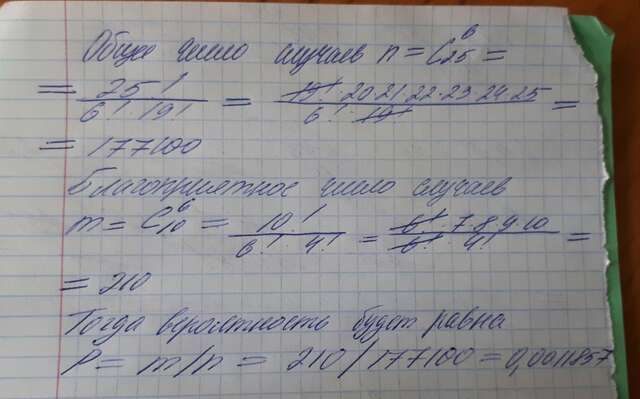 Общее число случаев n = C₂₅⁶ =
= 25! / 6! · 19! = 19! · 20 · 21 · 22 · 23 · 24 · 25 / 6! · 19! =
= 177100
Благоприятное число случаев
m = C₁₀⁶ = 10! / 6! · 4! = 6! · 7 · 8 · 9 · 10 / 6! · 4! =
= 210
Тогда вероятность будет равна
P = m/n = 210/177100 = 0,0011857